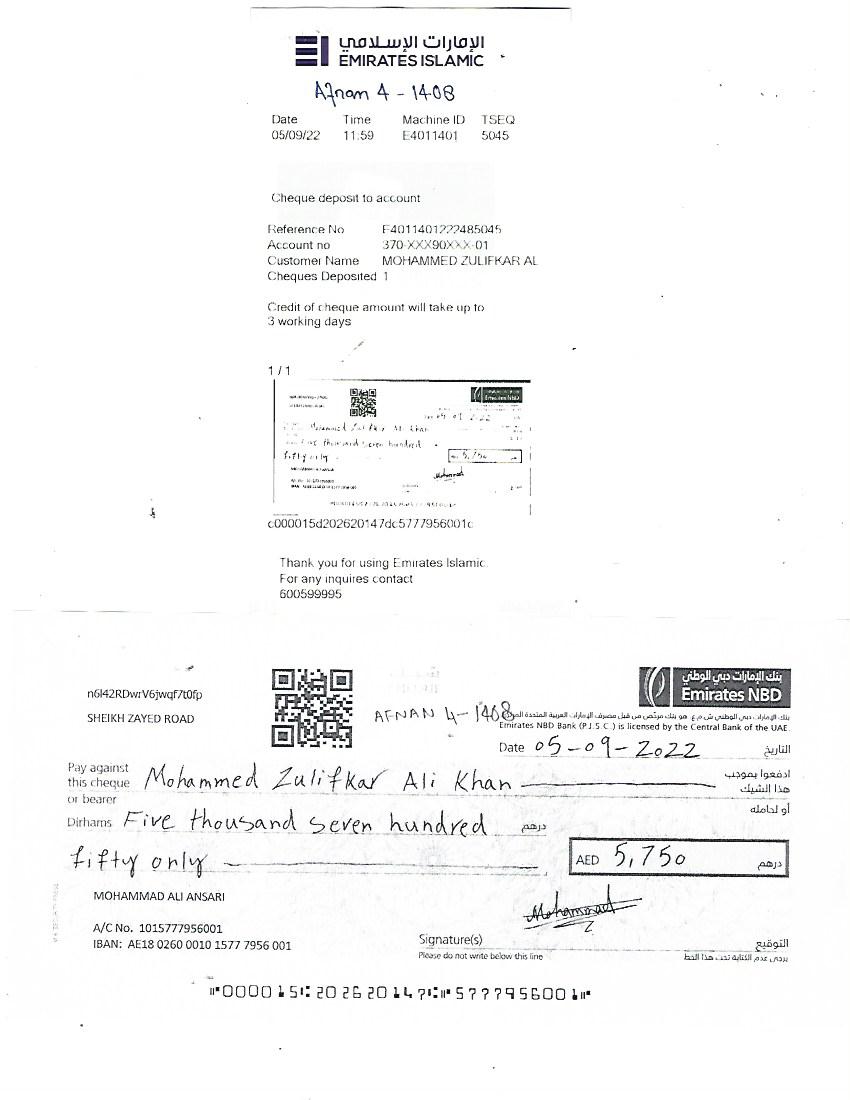 الإمارات الإسلامي
EMIRATES ISLAMIC
Afnan 4 - 1408
Date Time Machine ID TSEQ
05/09/22 11:59 E4011401 5045
Cheque deposit to account
Reference No E4011401222485045
Account no 370-XXX90XXX-01
Customer Name MOHAMMED ZULIFKAR AL
Cheques Deposited 1
Credit of cheque amount will take up to
3 working days
1 / 1
Emirates NBD
Mohammed Zulifkar Ali Khan
Five thousand seven hundred
fifty only 5,750
Mohammad
c000015d202620147dc5777956001c
Thank you for using Emirates Islamic.
For any inquires contact
600599995
بنك الإمارات دبي الوطني
Emirates NBD
n6l42RDwrV6jwqf7t0fp
SHEIKH ZAYED ROAD
AFNAN 4-1408
بنك الإمارات دبي الوطني ش.م.ع. هو بنك مرخص من قبل مصرف الإمارات العربية المتحدة
Emirates NBD Bank (P.J.S.C.) is licensed by the Central Bank of the UAE
Date 05-09-2022 التاريخ
Pay against this cheque or bearer Mohammed Zulifkar Ali Khan ادفعوا بموجب هذا الشيك أو لحامله
Dirhams Five thousand seven hundred درهم
fifty only AED 5,750 درهم
MOHAMMAD ALI ANSARI
Mohammad
A/C No. 1015777956001
IBAN: AE18 0260 0010 1577 7956 001
Signature(s) التوقيع
Please do not write below this line يرجى عدم الكتابة تحت هذا الخط
⑈000015⑆202620147⑆⑈5777956001⑈